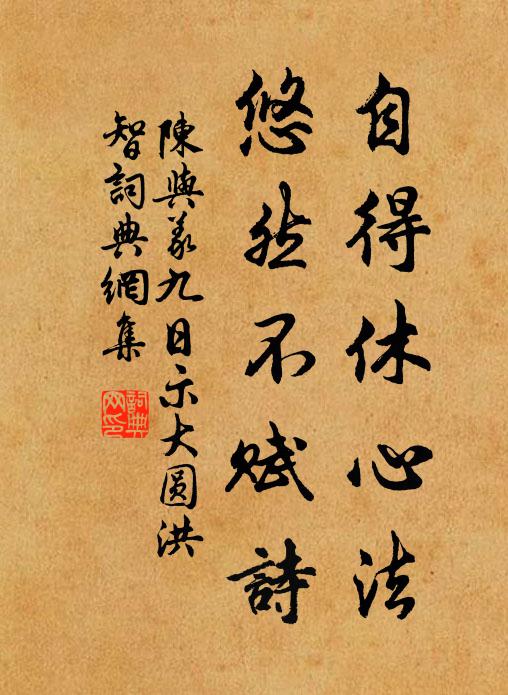 自得休心法
悠然不赋詩
陳與義九日示大圓洪
智詞典網集
詞典
网印